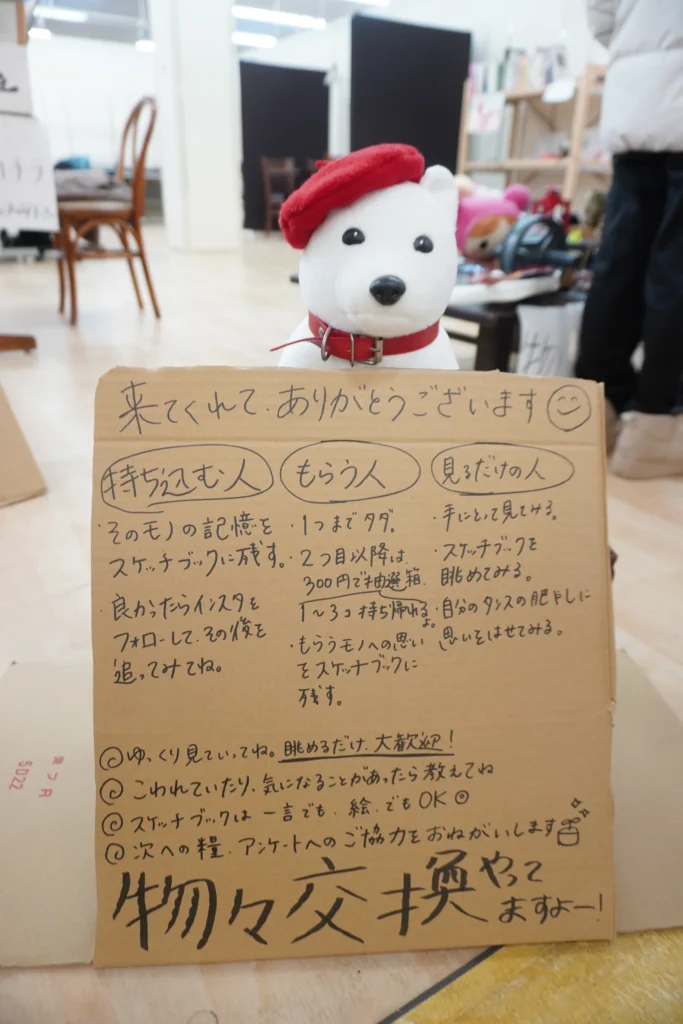 来てくれて、ありがとうございます
持ち込む人
・そのモノの記憶を
スケッチブックに残す。
・良かったらインスタを
フォローして、その後を
追ってみてね。
もらう人
・1つまでタダ。
・2つ目以降は
300円で抽選箱
1〜3コ持ち帰れるよ。
・もらうモノへの思い
をスケッチブックに
残す。
見るだけの人
・手にとって見てみる。
・スケッチブックを
眺めてみる。
・自分のタンスの肥やしに
思いをはせてみる。
ゆっくり見ていってね。眺めるだけ、大歓迎!
こわれていたり、気になることがあったら教えてね
スケッチブックは一言でも、絵、でもOK
次への糧、アンケートへのご協力をおねがいします
物々交換やって
ますよー!
5022
物